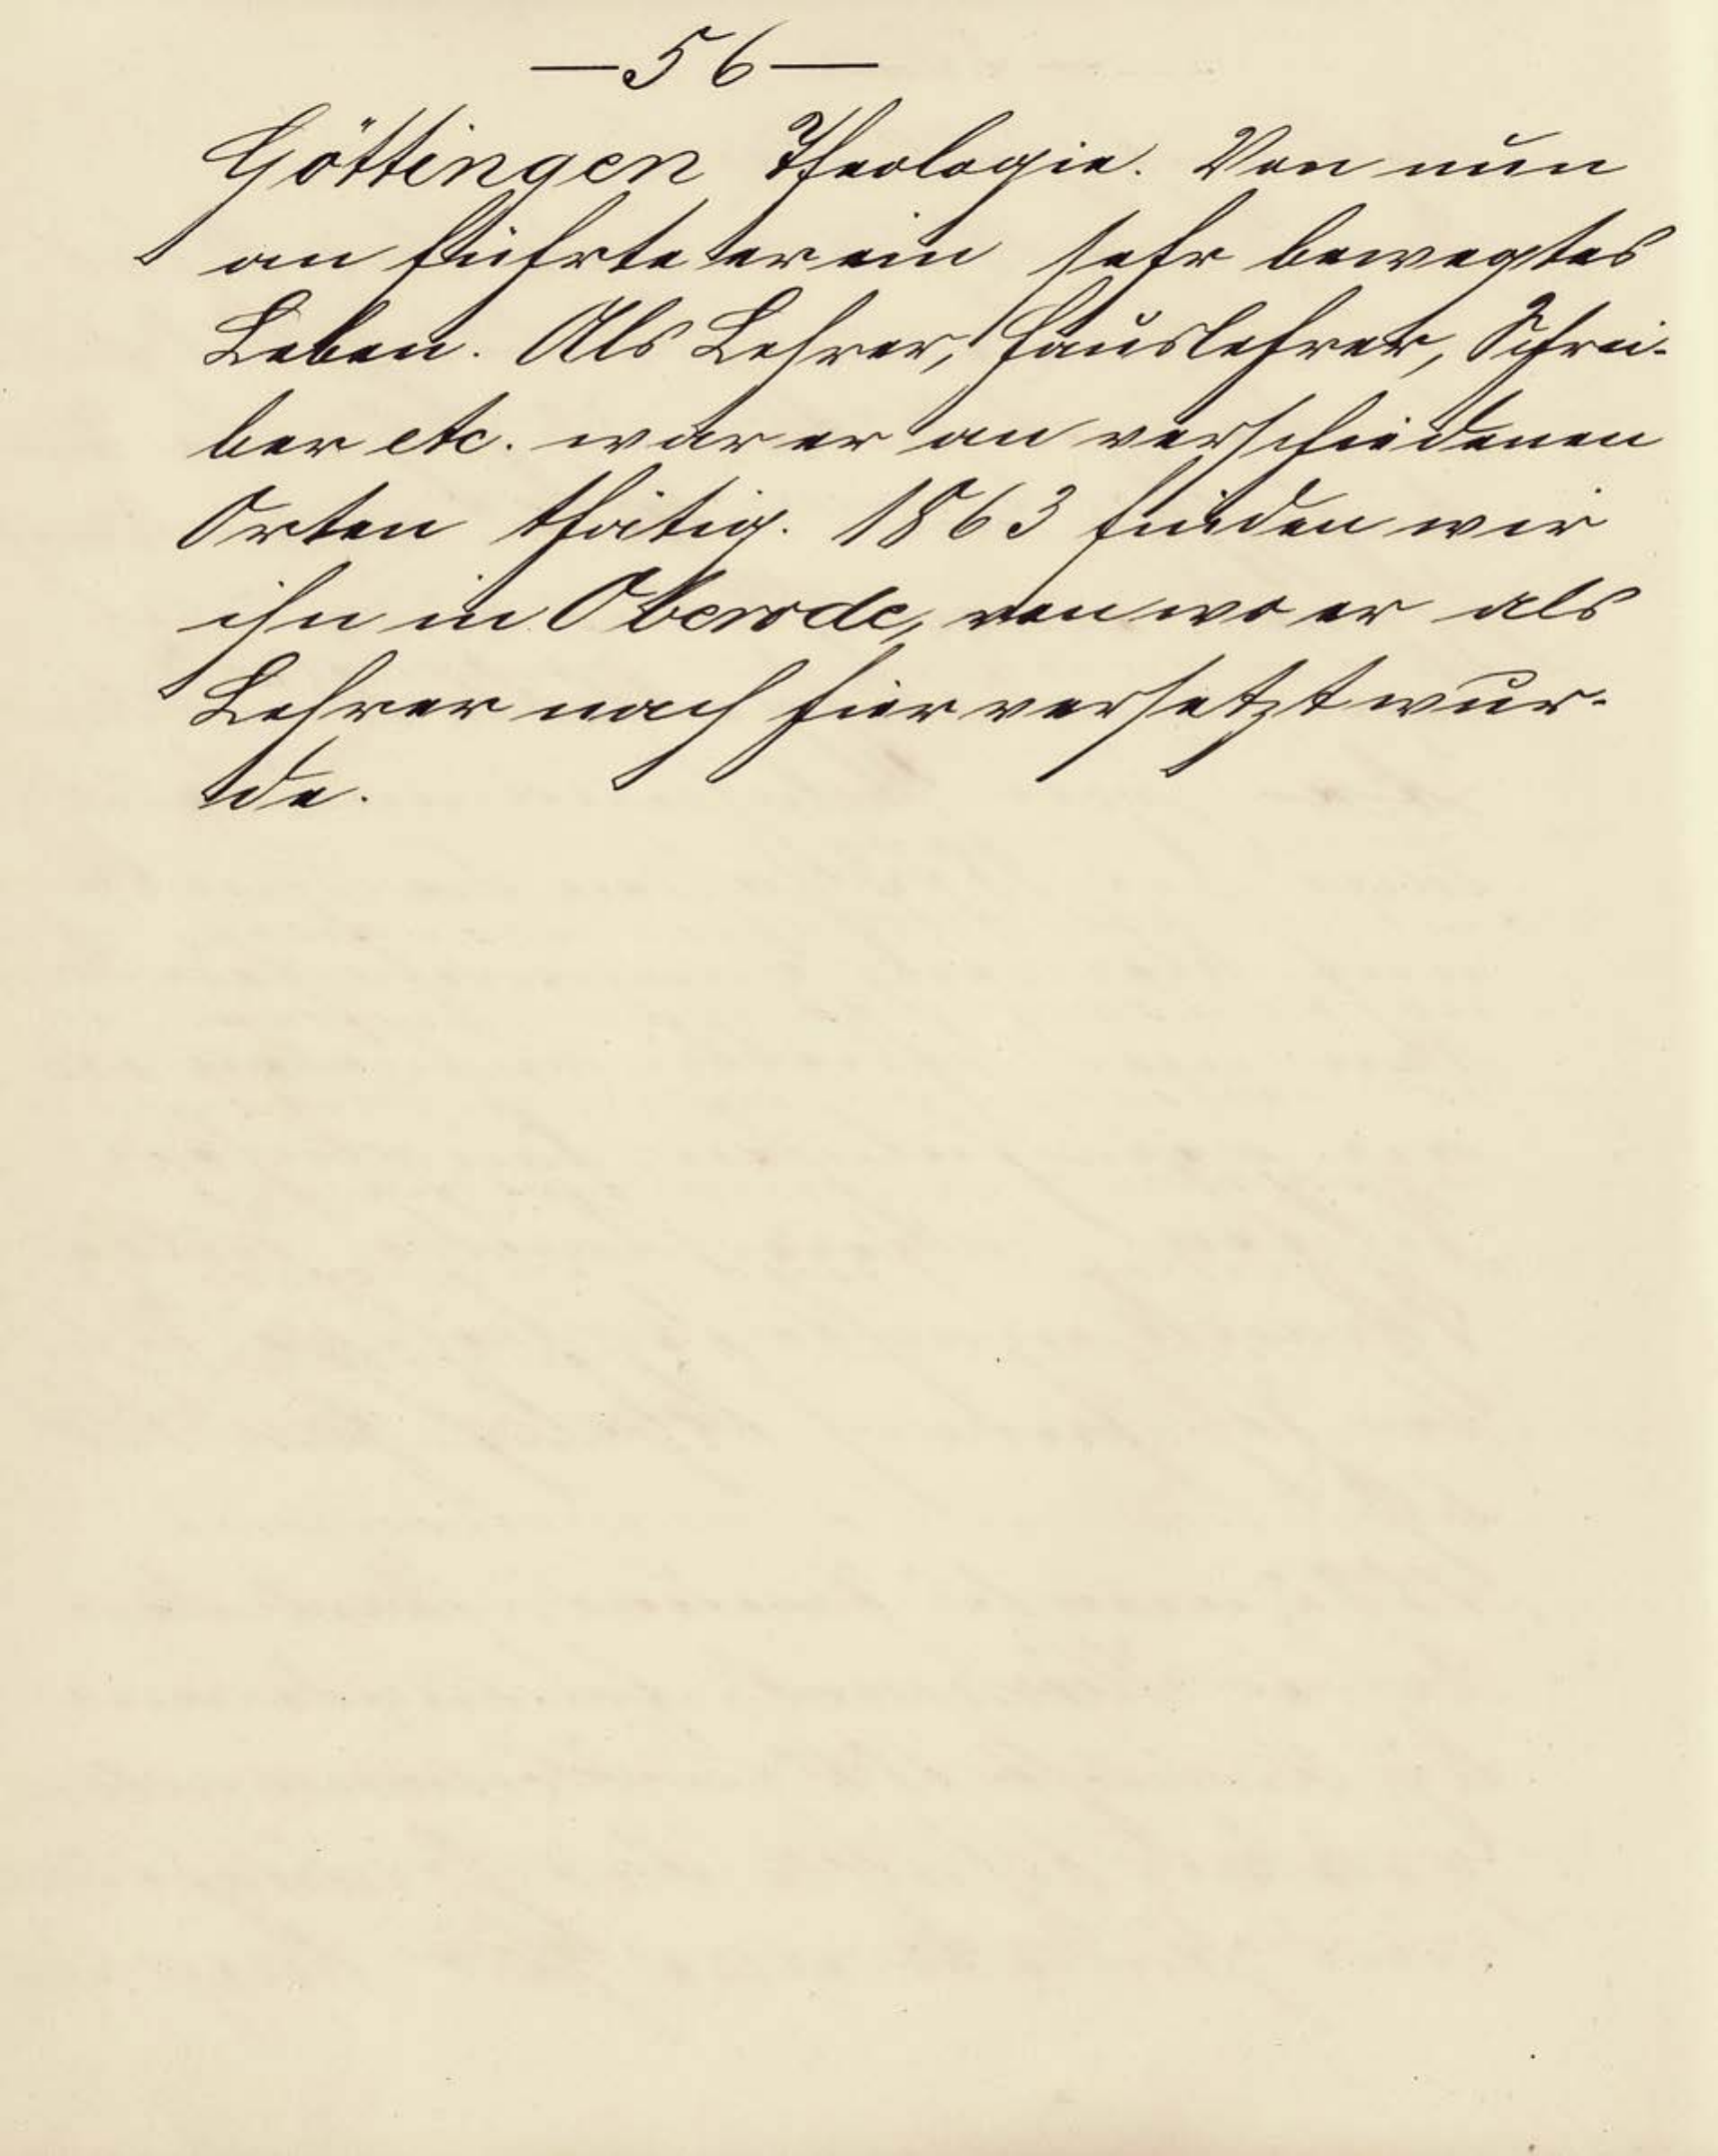 —56—
Göttingen Theologie. Von nun
an führte er ein sehr bewegtes
Leben. Als Lehrer, Hauslehrer, Schrei-
ber etc. war er an verschiedenen
Orten thätig. 1863 finden wir
ihn in Oberode, von wo er als
Lehrer nach hier versetzt wur-
de.